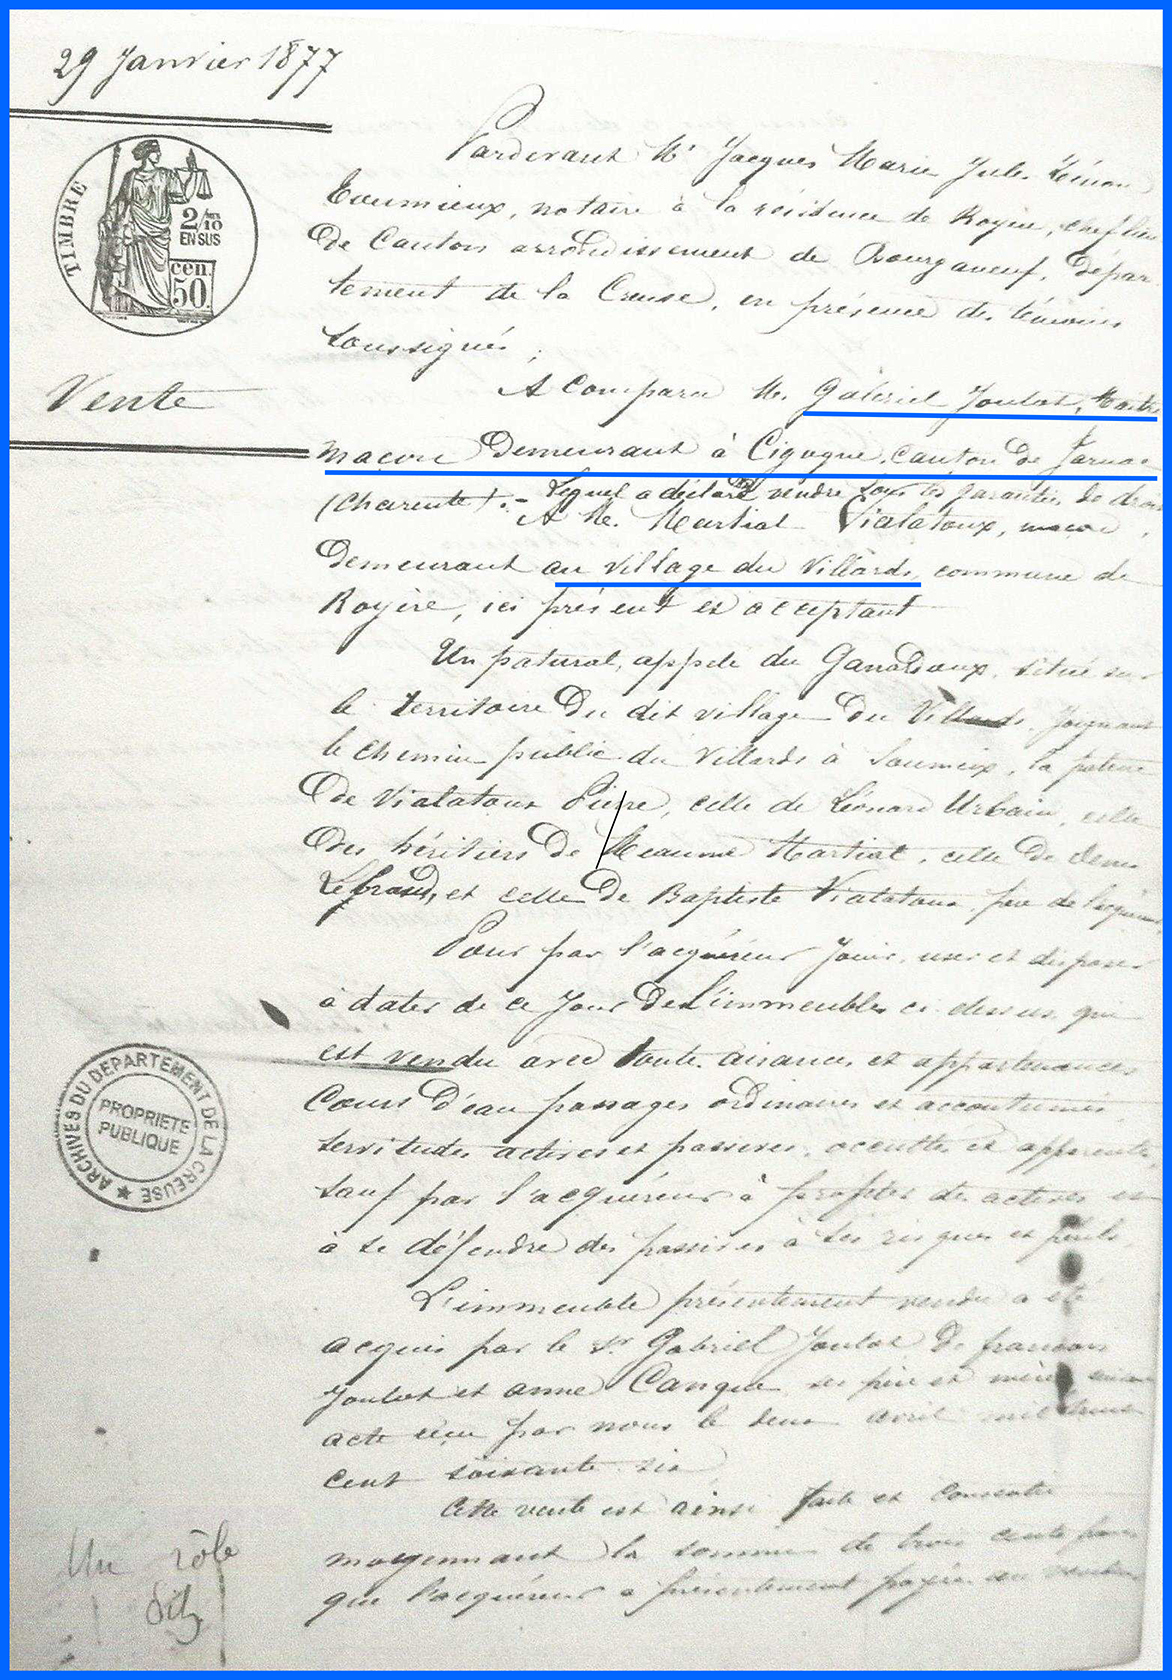 29 Janvier 1877
TIMBRE
2/10
EN SUS
cen.
50
Vente
Pardevant Me Jacques Marie Jules
notaire à la résidence de Royère, chef lieu
de Canton arrondissement de Bourganeuf, dépar
tement de la Creuse, en présence des témoins
soussignés ;
A Comparu M. Gabriel Joulot, Maître
macon Demeurant à Cigogne, Canton de Jarnac
(Charente). - Lequel a déclaré vendre sous les garanties de droit
A M. Martial Vialatoux, macon,
Demeurant au village du Villards, commune de
Royère, ici présent et acceptant
Un patural, appelé du situé sur
le territoire Du dit village Du Villards. Joignant
le chemin public du Villards à la
De Vialatoux Pierre, celle de Léonard Urbain, celle
Des héritiers de Meaume Martial, celle De
Lefraud, et celle De Baptiste Vialatoux
Pour par l'acquéreur Jouir, user et disposer
à dater de ce Jour De L'immeuble ci dessus que
est vendu avec toute aisances et appartenances
Cours D'eau passages ordinaires et accoutumés
servitudes actives et passives, occultes et apparentes,
sauf par l'acquéreur à profiter des actives et
à se défendre des passives à ses risques et périls.
L'immeuble présentement vendu a été
acquis par le Sr Gabriel Joulot De francois
Joulot et anne Cangue ses père et mère suivant
acte reçu par nous le deux avril mil huit
cent soixante six
Cette vente est ainsi faite et consentie
moyennant la somme de trois cents francs
que l'acquéreur a présentement payée au vendeur
ARCHIVES DU DEPARTEMENT DE LA CREUSE
PROPRIETE
PUBLIQUE
Un rôle